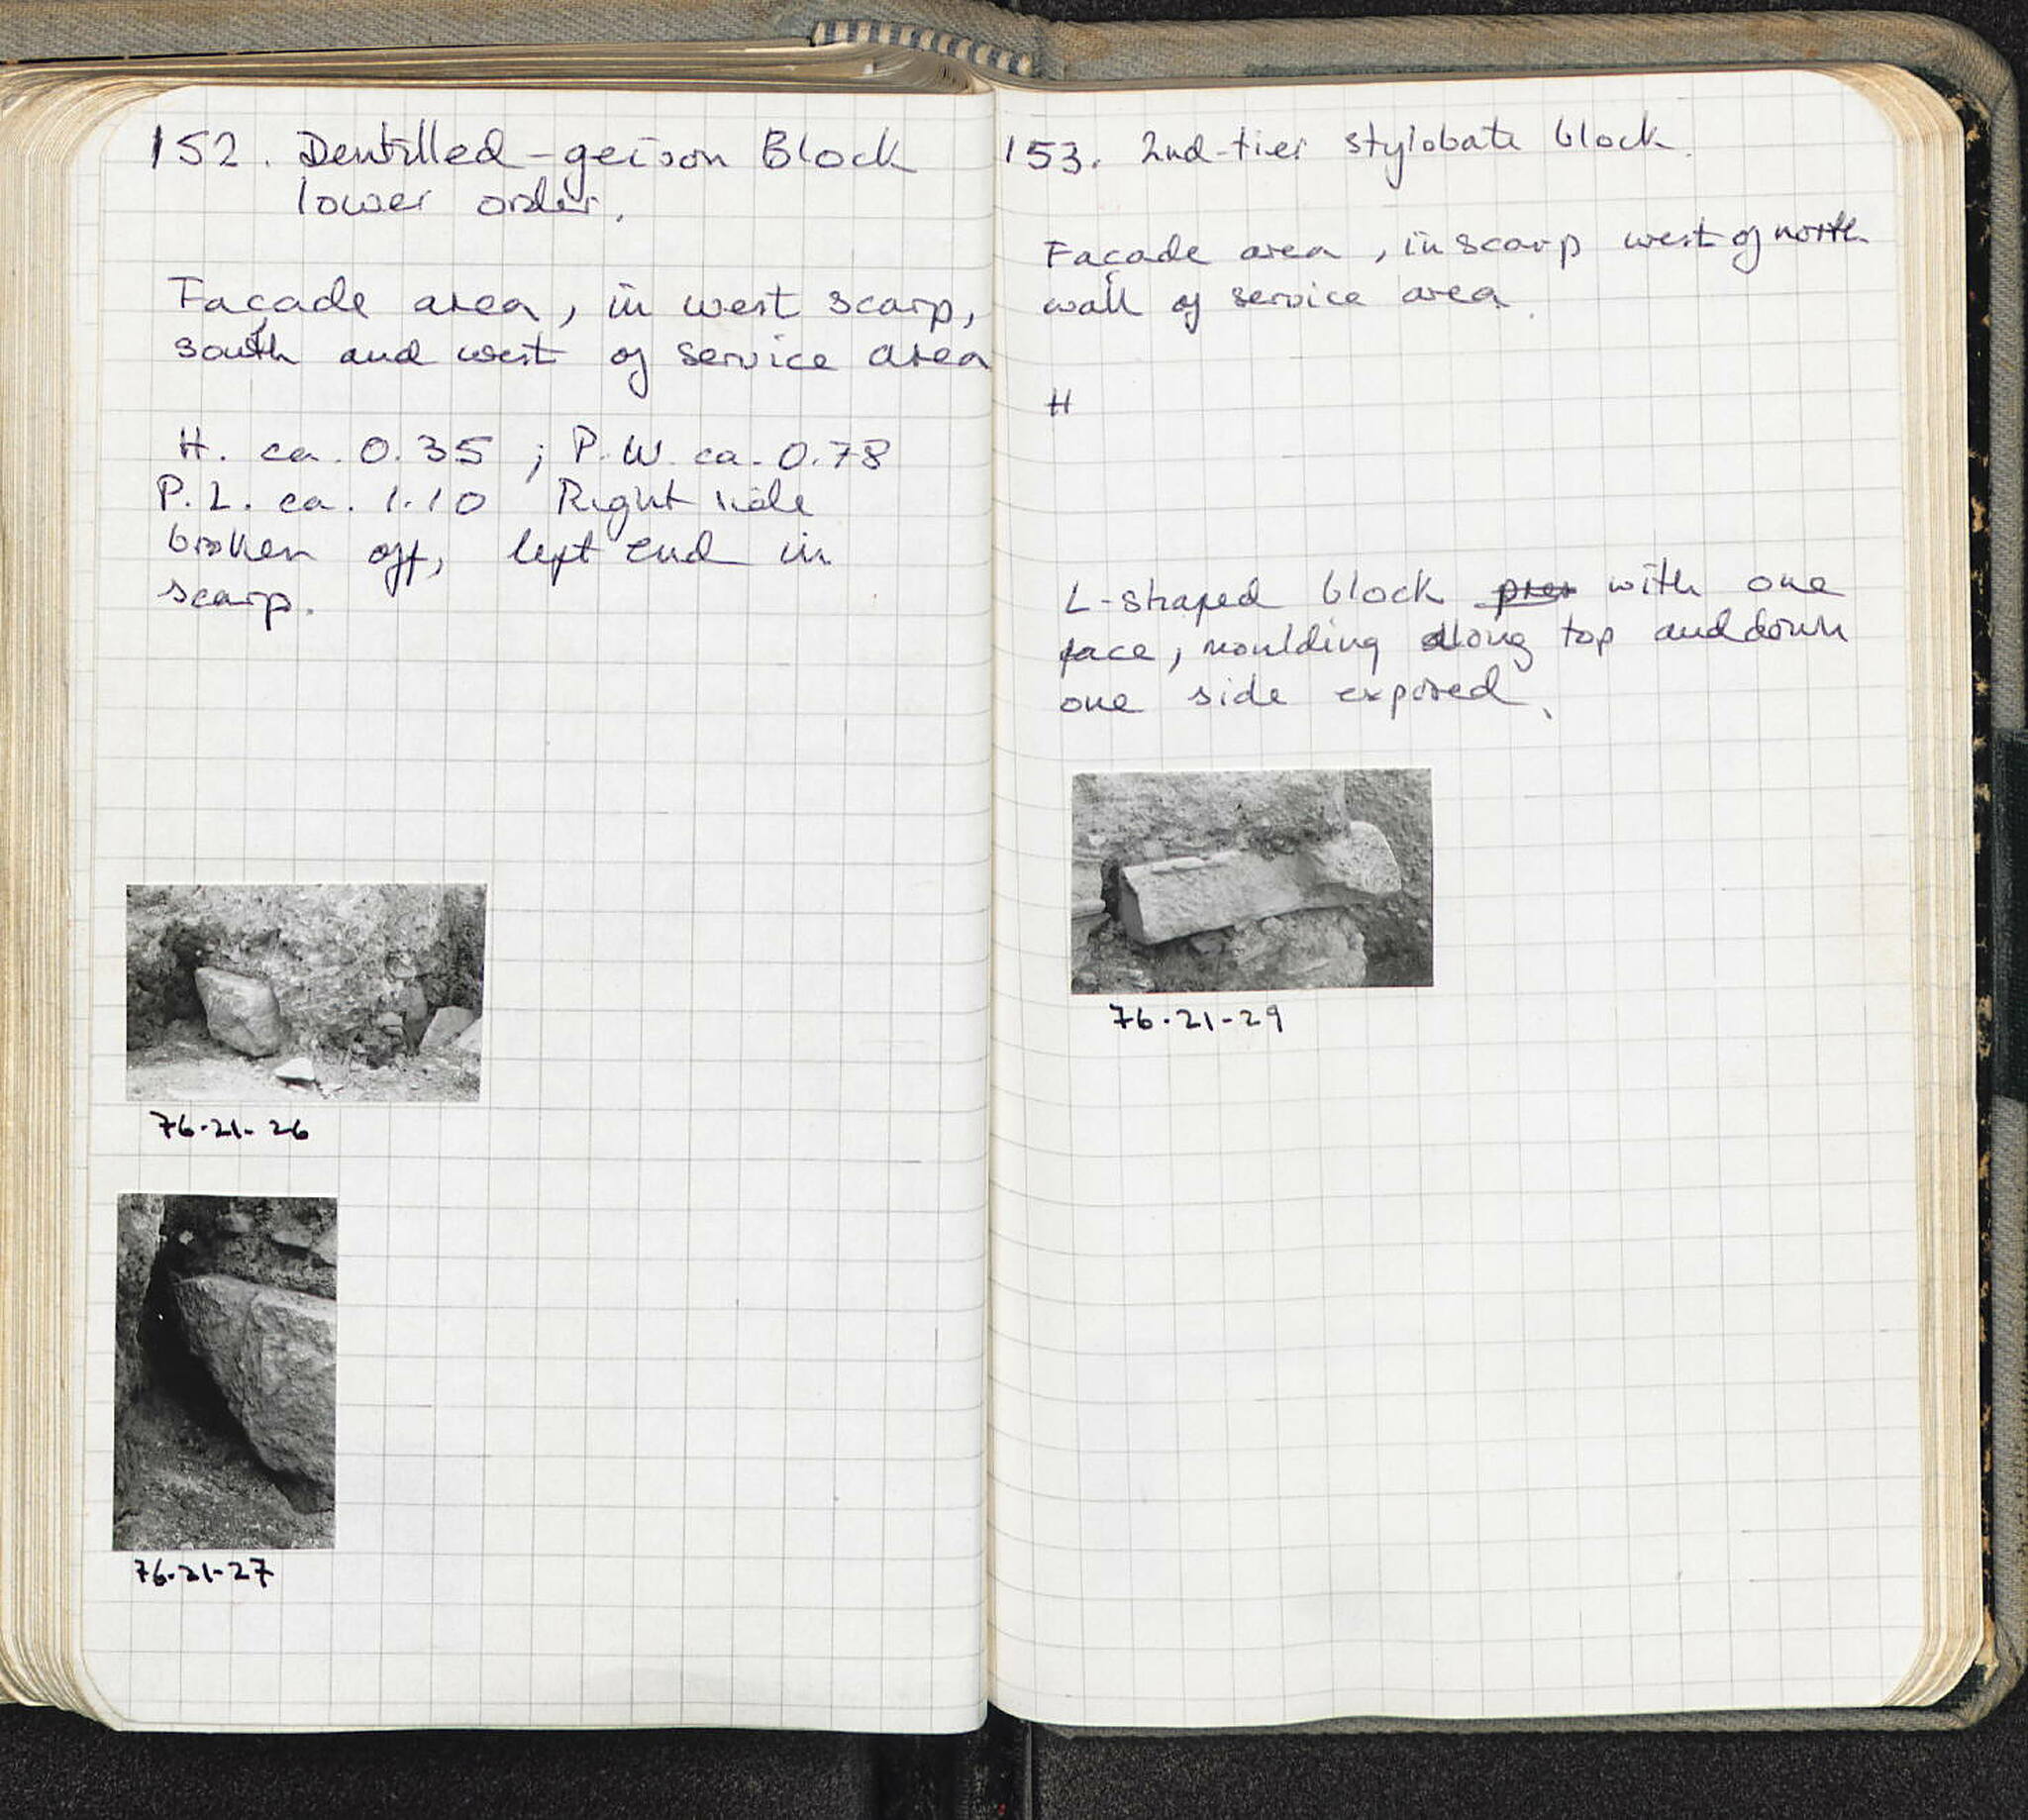 152. Dentilled-geison Block
lower order.
Façade area, in west scarp,
south and west of service area
H. ca. 0.35 ; P.W. ca. 0.78
P.L. ca. 1.10 Right side
broken off, left end in
scarp.
76-21-26
76-21-27
153. 2nd-tier stylobate block.
Façade area, in scarp west of north
wall of service area.
H
L-shaped block with one
face, moulding along top and down
one side exposed.
76-21-29